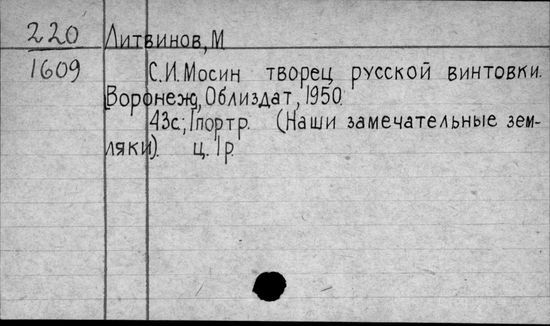 220 Литвинов, М
1609 С.И. Мосин творец русской винтовки.
Воронеж, Облиздат, 1950.
43с.; 1портр. (Наши замечательные зем-
ляки). ц. 1р.